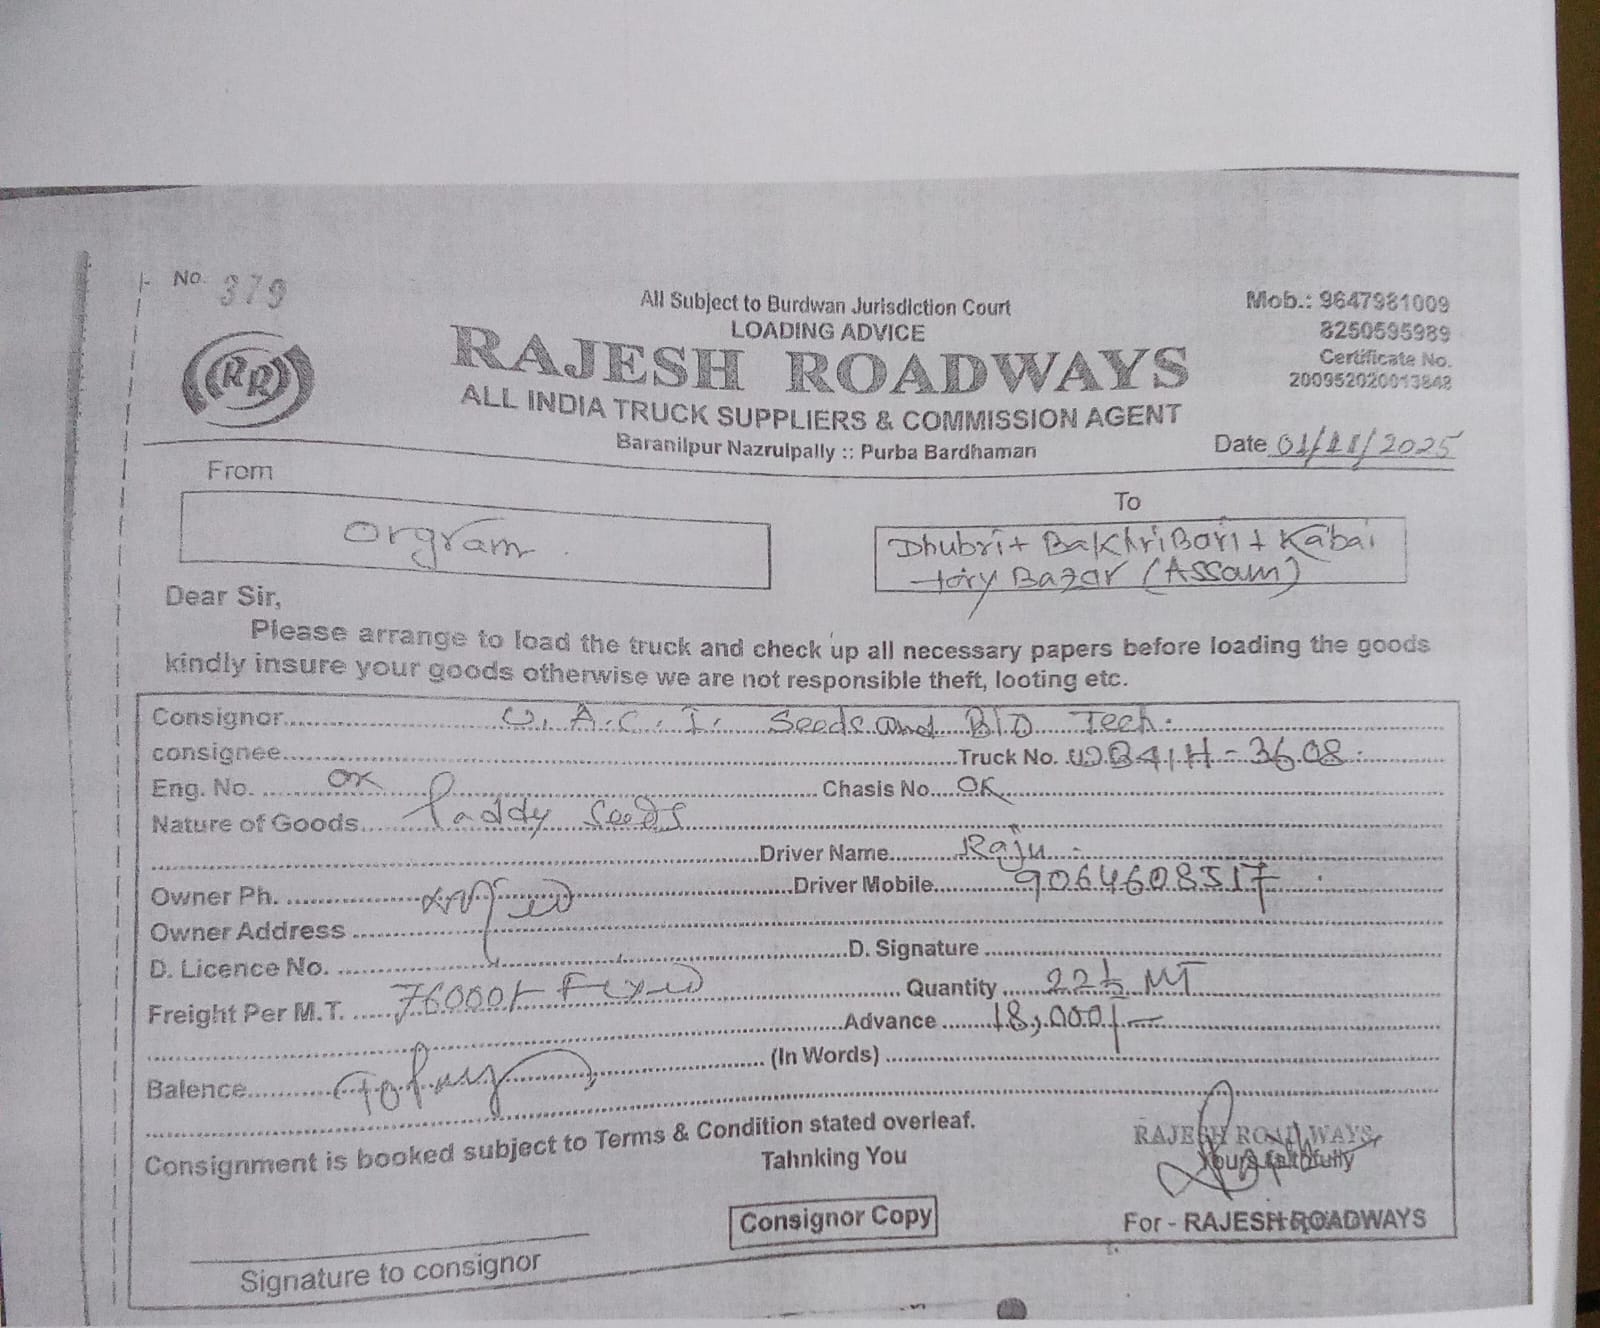 No. 379
All Subject to Burdwan Jurisdiction Court
LOADING ADVICE
Mob.: 9647981009
8250595989
RAJESH ROADWAYS
Certificate No.
200952020013848
RR
ALL INDIA TRUCK SUPPLIERS & COMMISSION AGENT
Baranilpur Nazrulpally :: Purba Bardhaman
Date 01/11/2025
From
To
Orgram
Dhubri + BakhriBari + Kabai
tary Bazar (Assam)
Dear Sir,
Please arrange to load the truck and check up all necessary papers before loading the goods
kindly insure your goods otherwise we are not responsible theft, looting etc.
Consignor U.A.C.I. Seeds and BIO Tech.
consignee Truck No. WB41H-3608
Eng. No. OK Chasis No. OK
Nature of Goods Paddy Seeds
Driver Name Raju
Owner Ph. Driver Mobile 9064608517
Owner Address
D. Licence No. D. Signature
Freight Per M.T. 76000/- Fixed Quantity 22½ MT
Advance 18,000/-
Balence (In Words)
Consignment is booked subject to Terms & Condition stated overleaf.
Tahnking You
RAJESH ROADWAYS
Yours faithfully
Consignor Copy
For - RAJESH ROADWAYS
Signature to consignor